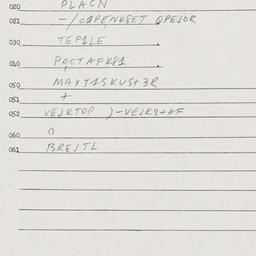 020 PLACN
021 -/C1PENKSET OPEJOR
030 TEP1LE .
040 POCTAFK81 .
050 MAYT1SKUS+3R
051 +
052 VEJKTOP )-VEJKS+AF
060 0
061 BREJTL